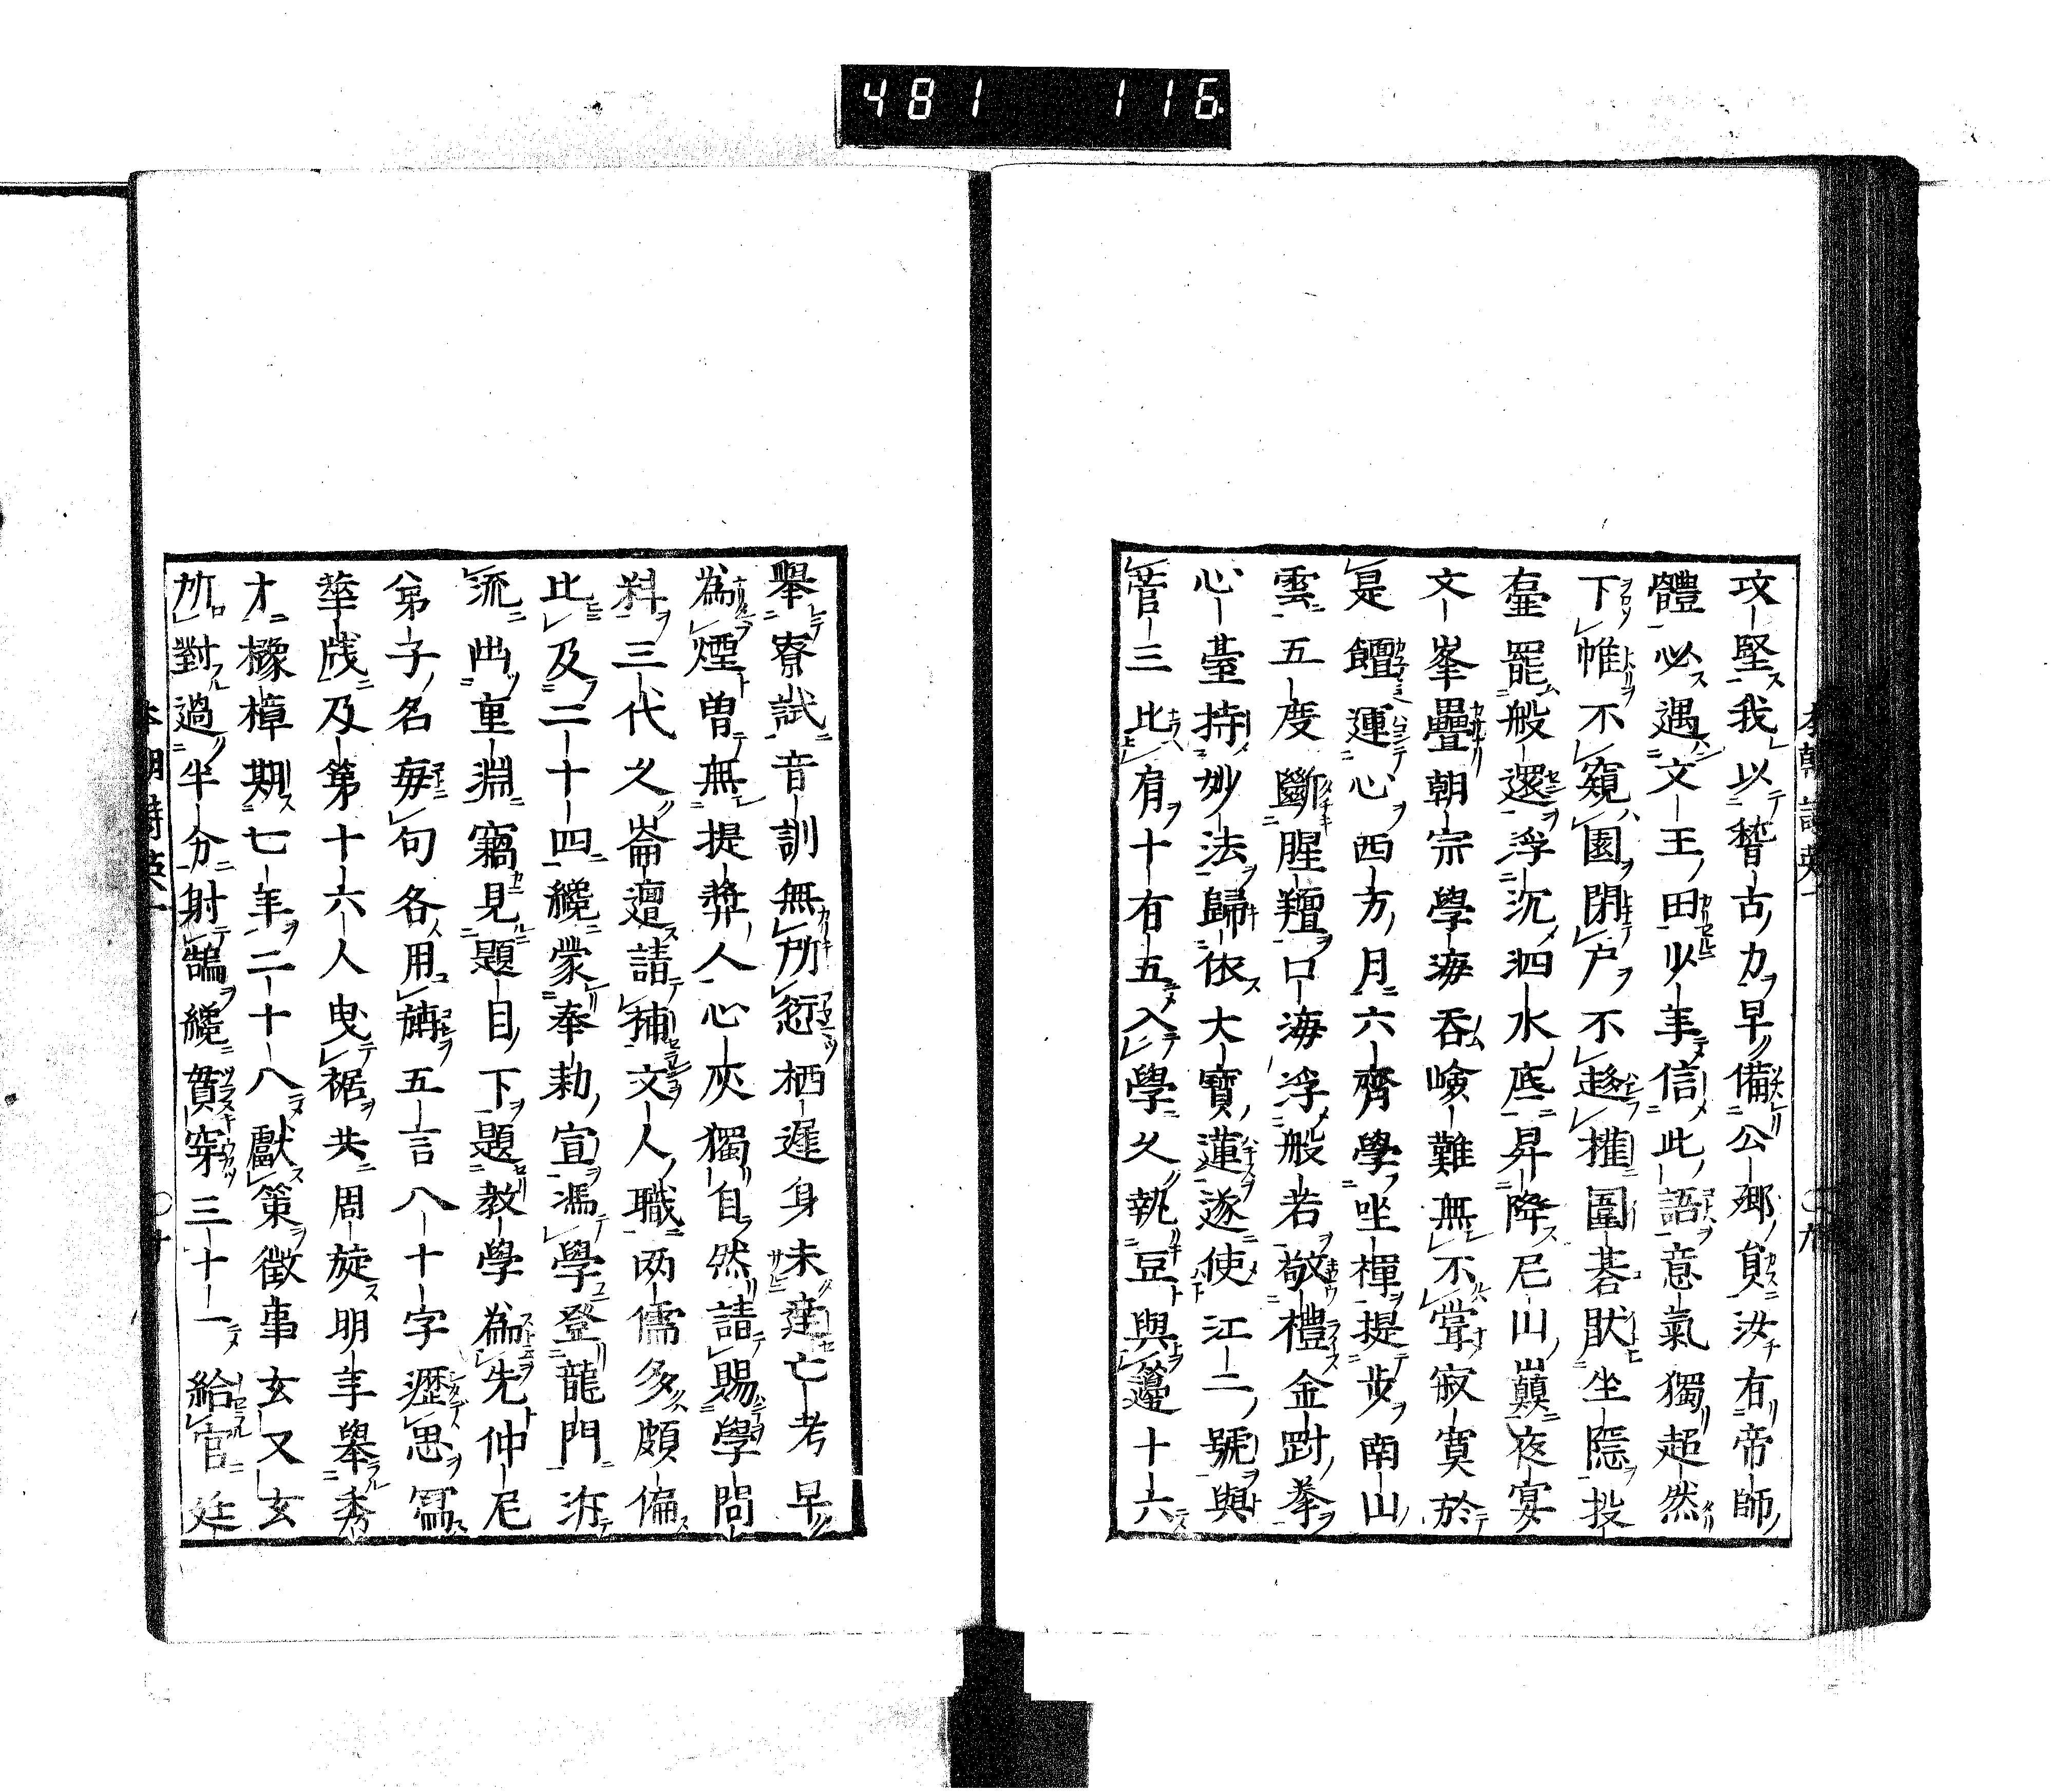 481 116
攻堅我以稽古力早備公卿員汝有帝師
體必遇文王田少年信此語意氣獨超然
下帷不窺園閉戶不趁攉圍碁猒坐隱投
壷罷般還浮沉泗水底昇降尼山巔夜宴
文峯疊朝宗學海吞嶮難無不嘗寂寞於
是饘運心西方月六齊學坐禪提步南山
雲五度斷腥羶口海浮般若敬禮金㔁拳
心臺持妙法歸依大寶蓮遂使江二號與
菅三比肩十有五入學久執豆與籩十六
舉寮試音訓無所愆栖遲身未達亡考早
為煙曽無提奨人心灰獨自然請賜學問
料三代久崙邅請補文人職兩儒多頗偏
比及二十四纔蒙奉勅宣馮學登龍門泝
流出重淵竊見題目下題教學為先仲尼
弟子名每句各用旃五言八十字瀝思冩
華牋及第十六人曳裾共周旋明年舉秀
才櫲樟期七年二十八獻策徵事玄又玄
所對過半分射鵠纔貫穿三十一給官廷
本朝詩英一